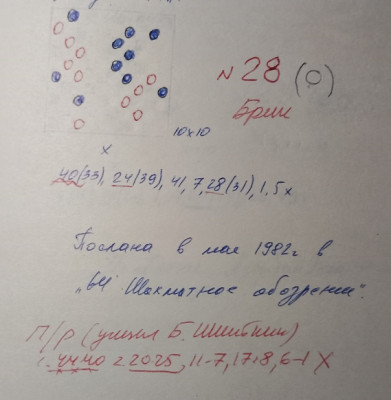 N 28 (0)
10x10
x
40(33), 24(39), 41, 7, 28(31), 1. 5x
Послана в мае 1982г в
„64 Шахматное обозрение“.
П/р (учшел Б. Шкиткин)
1. 4440 2. 2025, 11-7, 17:8, 6-1 X